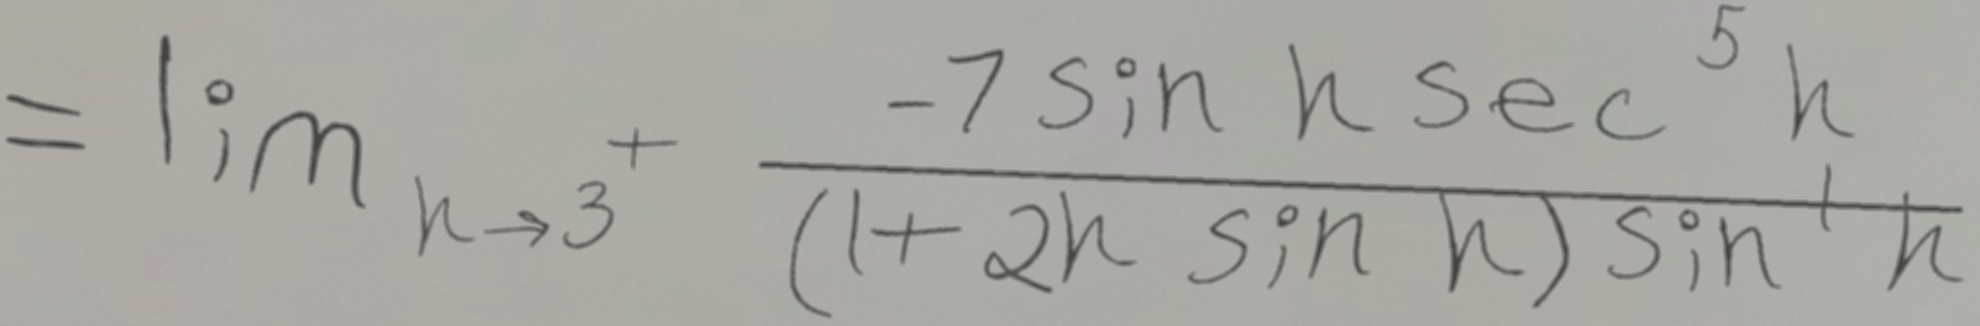 = \lim_{h \to 3^+} \frac{-7 \sin h \sec^5 h}{(1 + 2h \sin h) \sin^1 h}